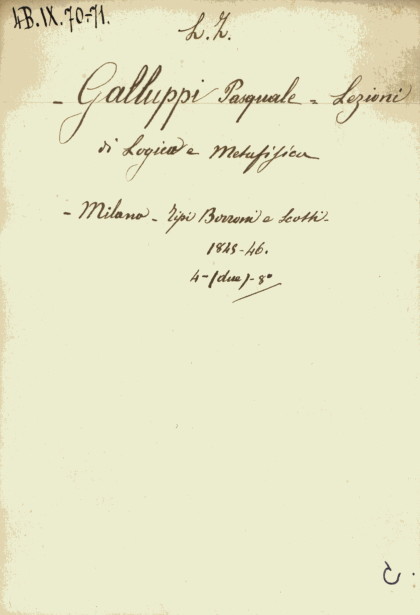 4B.IX.70-71.
L.Z.
- Galluppi Pasquale = Lezioni
di Logica e Metafisica
- Milano - Tipi Borroni e Scotti -
1845-46.
4-(due)-8°